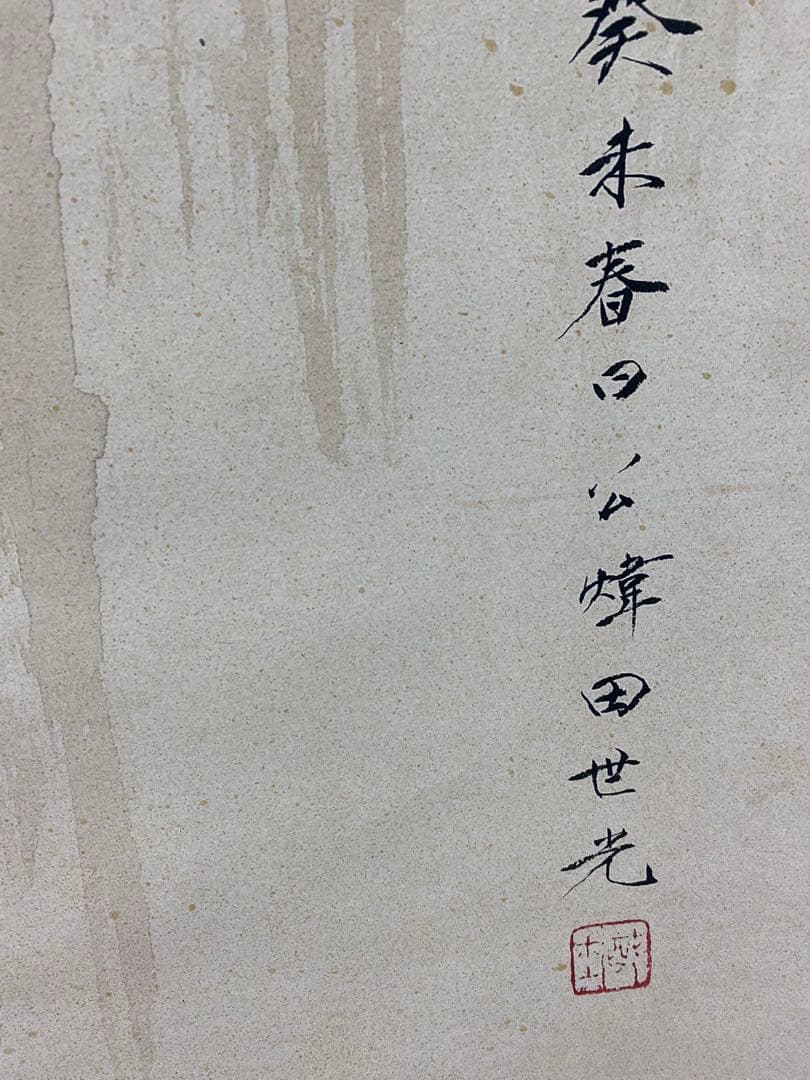 癸未春日公煒田世光